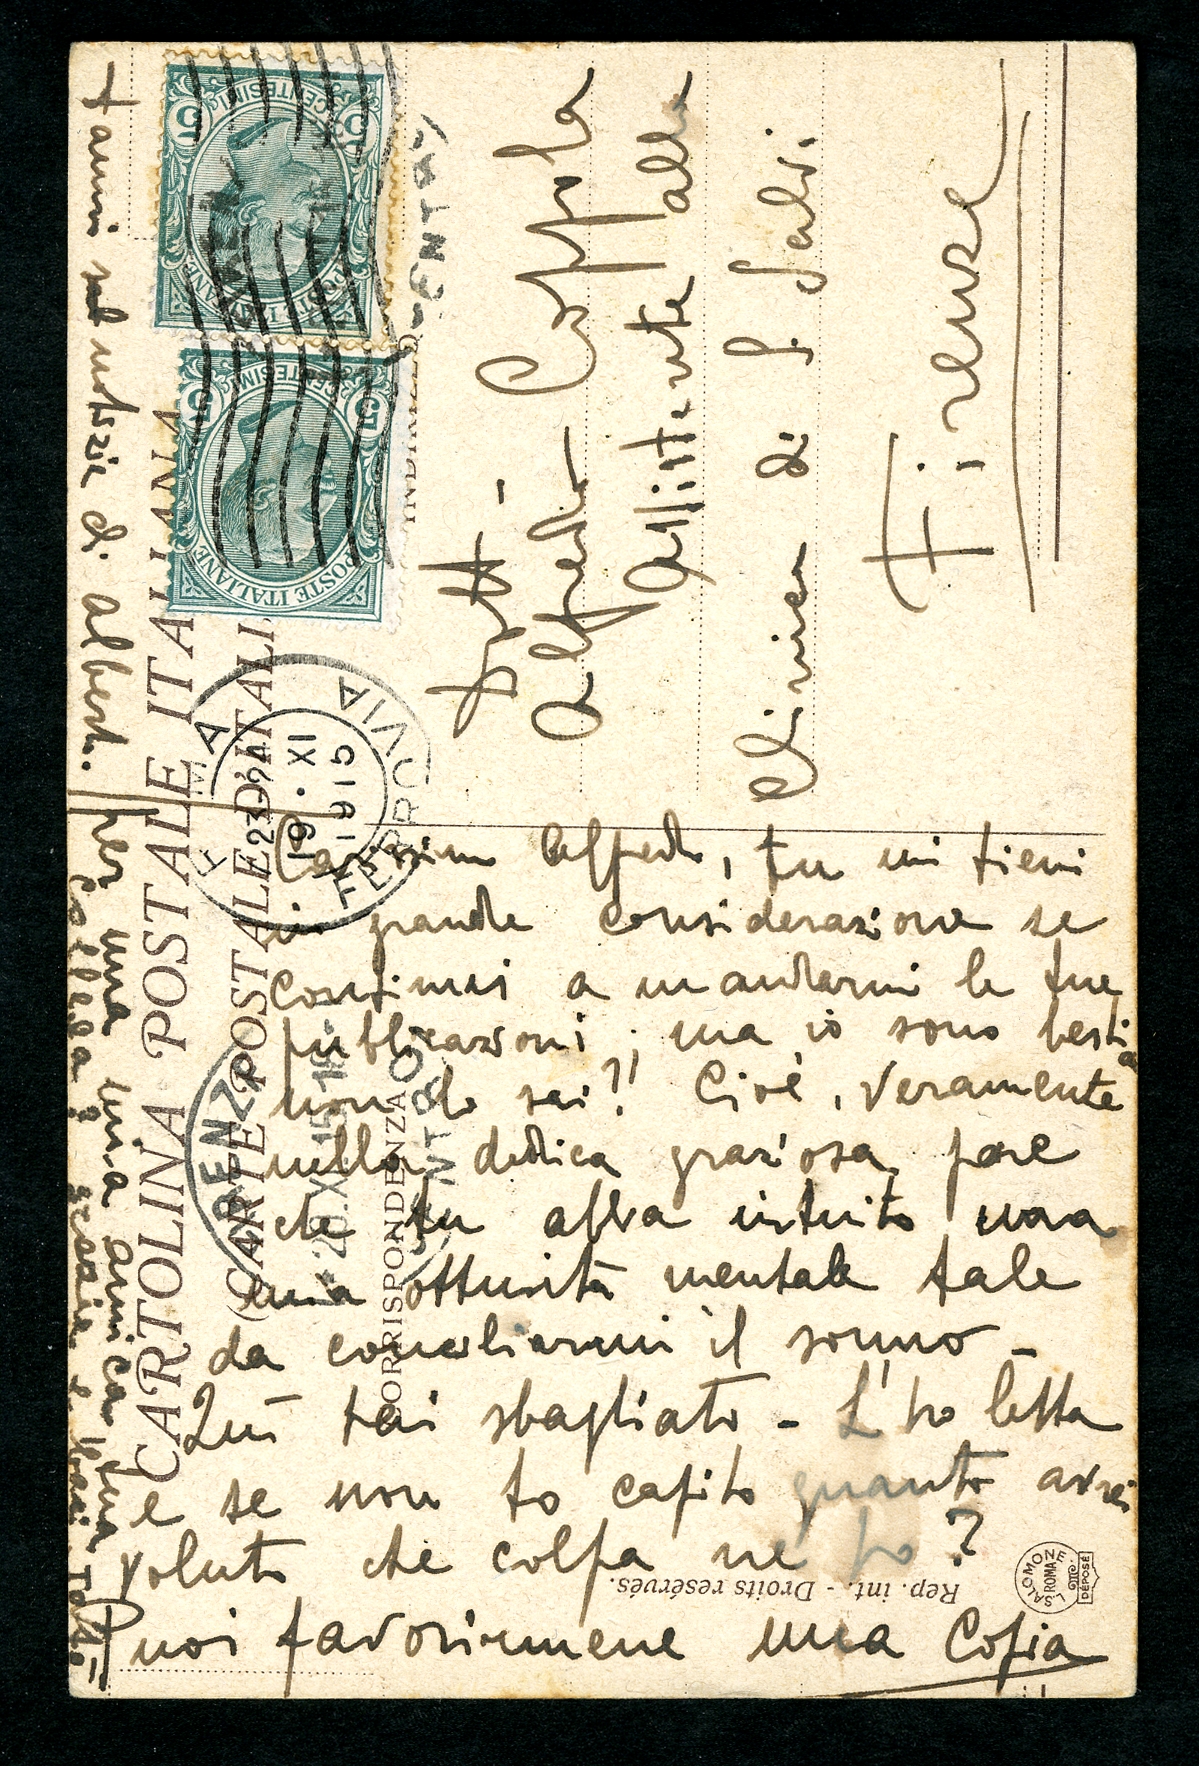 CARTOLINA POSTALE ITALIANA
(CARTE POSTALE D'ITALIE)
CORRISPONDENZA
INDIRIZZO
POSTE ITALIANE
CENTESIMI
5
5
POSTE ITALIANE
CENTESIMI
5
5
ROMA
23-24
19 • XI
1915
FERROVIA
Dott-
Alfredo Coppola
Assistente alla
Clinica di S. Salvi.
Firenze
Carissimo Alfredo, tu mi tieni
in grande considerazione se
continui a mandarmi le tue
pubblicazioni; ma io sono bestia
non lo sai?! Cioè, veramente
nella dedica graziosa pare
che tu abba intuito una
mia ottusità mentale tale
da conciliarmi il sonno -
Qui hai sbagliato - L'ho letta
e se non ho capito quanto avrei
voluto che colpa ne ho?
Puoi favorirmene una copia
per una mia amica tua
collega? grazie e baci Totò-
Fammi sul notizie di Alberto.
Rep. int. - Droits resérvés.
SALOMONE
ROMA
DÉPOSÉ